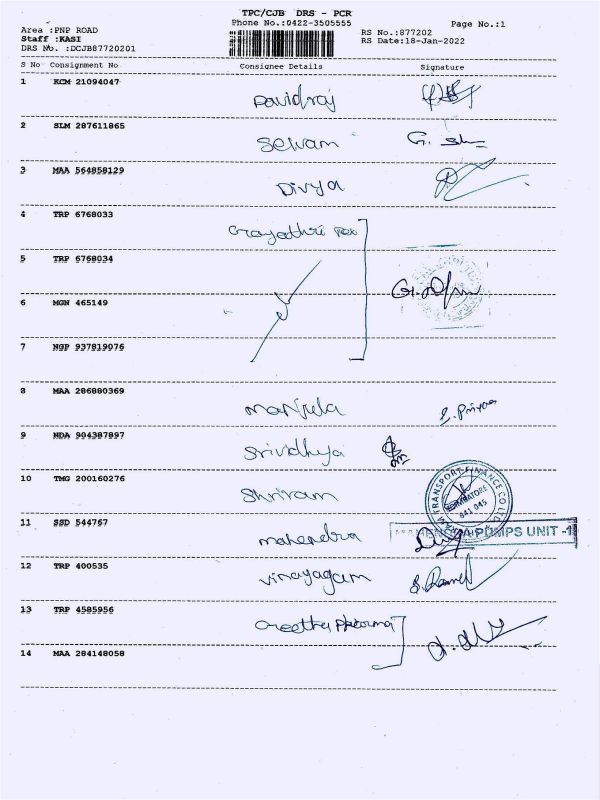 TPC/CJB DRS - PCR
Phone No.:0422-3505555 Page No.:1
Area :PNP ROAD RS No.:877202
Staff :KASI RS Date:18-Jan-2022
DRS No. :DCJB87720201
S No Consignment No Consignee Details Signature
1 KCM 21094047 Davidraj
2 SLM 287611865 Selvam
3 MAA 564858129 Divya
4 TRP 6768033 Grayathri Tex
5 TRP 6768034
6 MGN 465149
7 NGP 937819076
8 MAA 286880369 Manjula S. Priyaa
9 NDA 904387897 Srividhya
10 TMG 200160276 Shriram
TRANSPORT FINANCE CO LTD
COIMBATORE
641 045
11 SSD 544767 mahendra
PUMPS UNIT -1
12 TRP 400535 Vinayagam
13 TRP 4585956 Greetha pharma
14 MAA 284148058